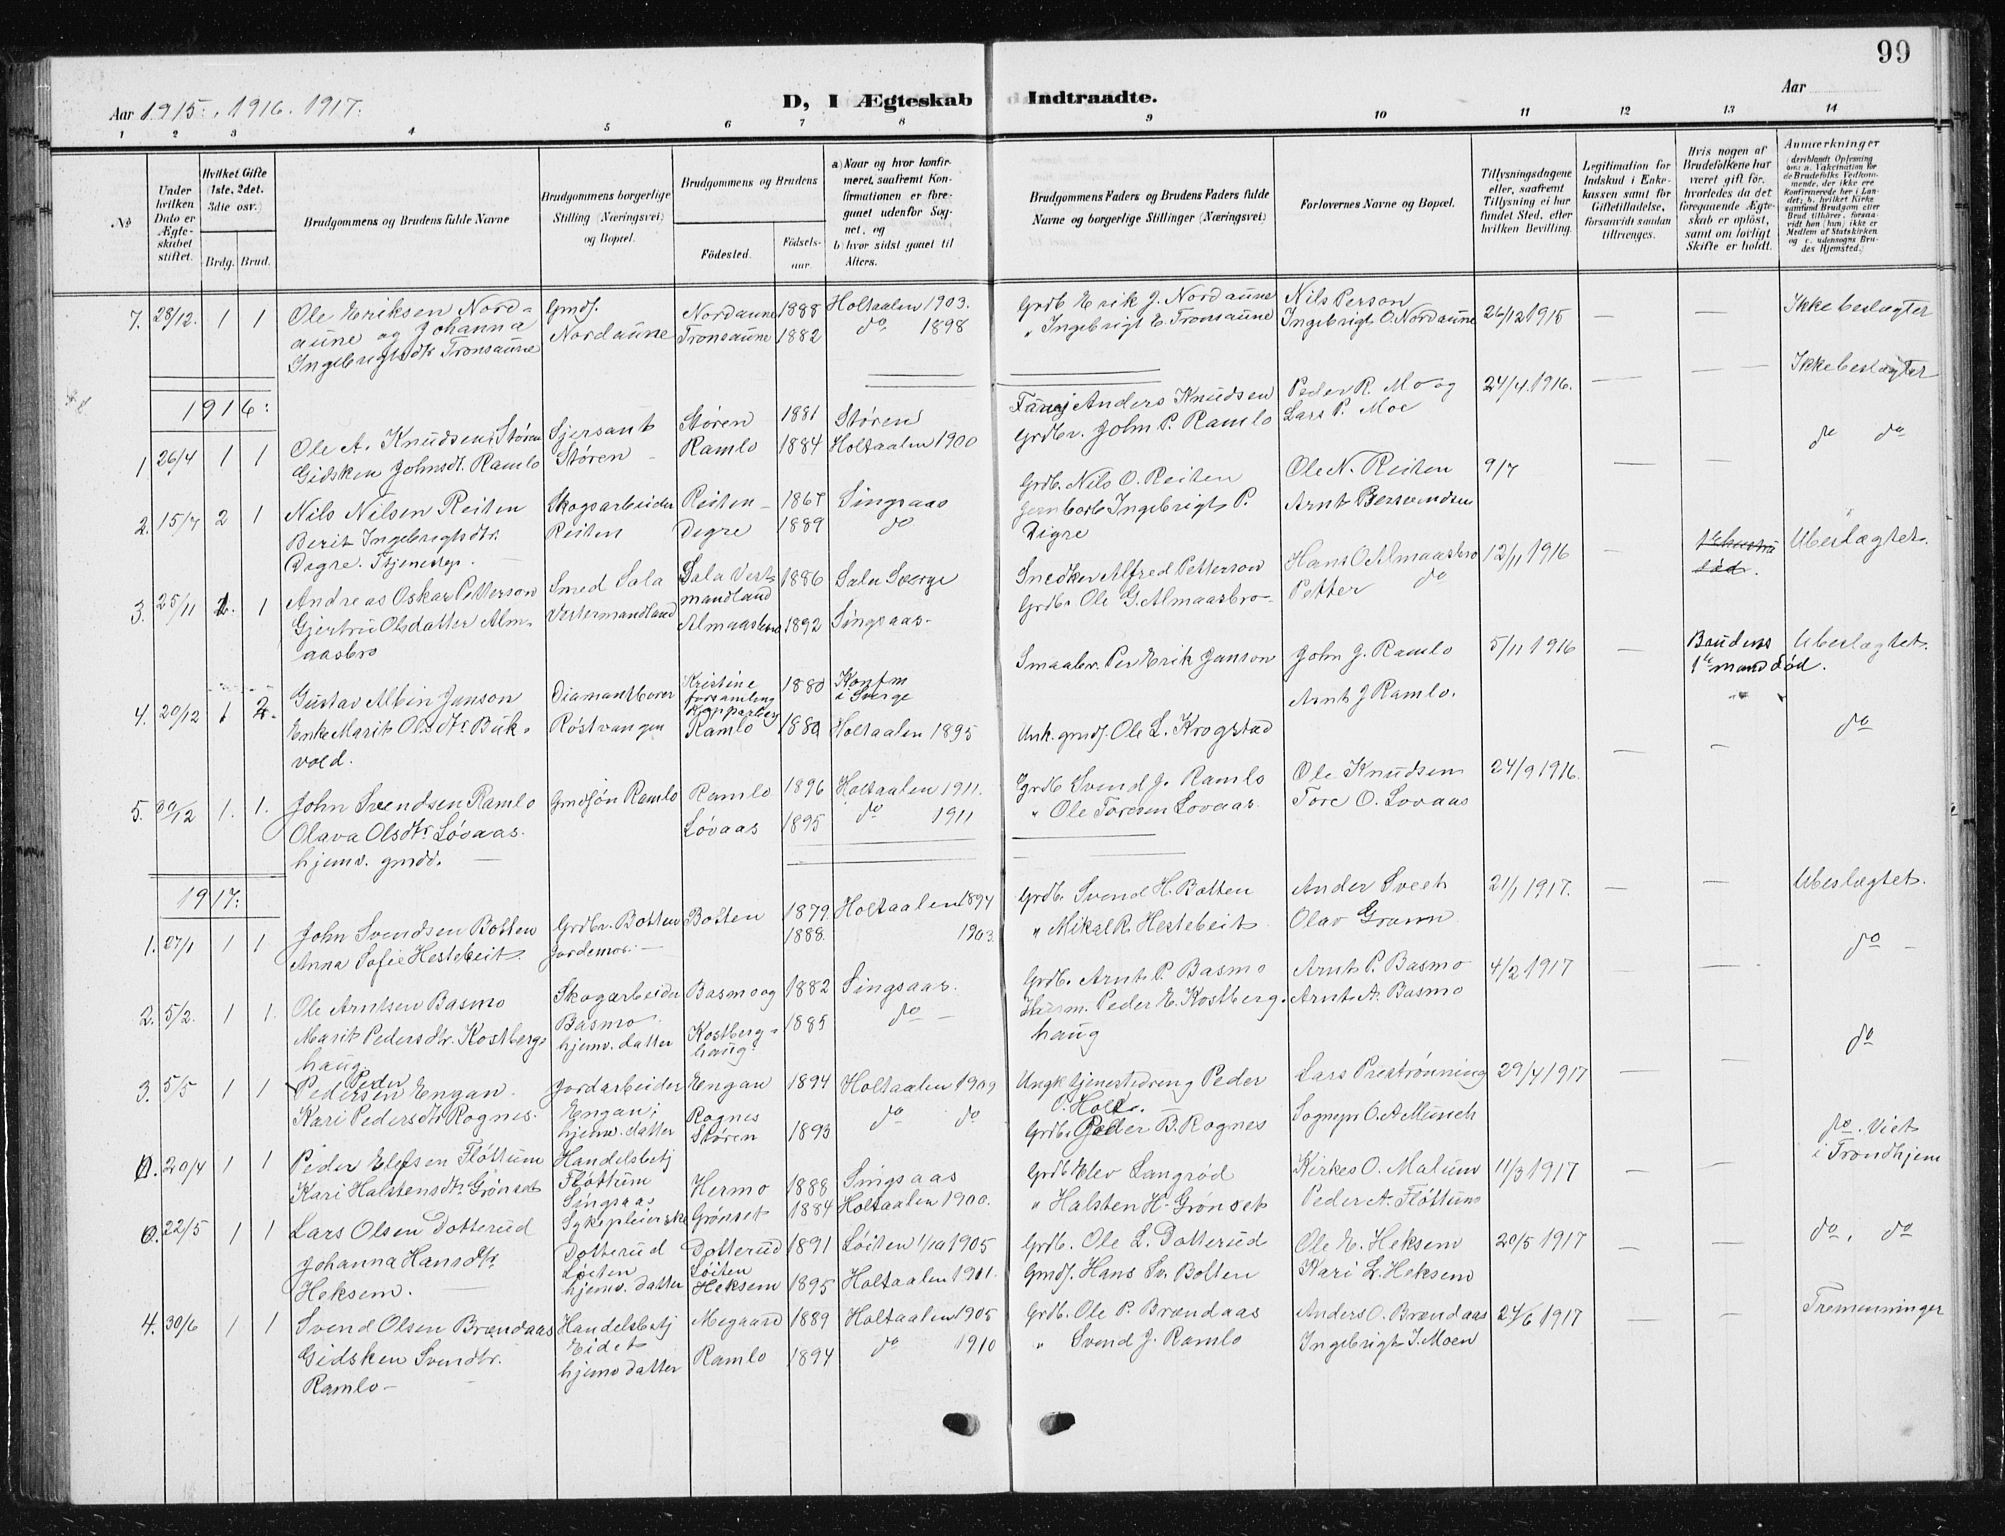 99
Aar 1915. 1916. 1917.
D, I Ægteskab Indtraadte.
Aar
1 2 3 4 5 6 7 8 9 10 11 12 13 14
No
Under hvilken Dato er Ægteskabet stiftet.
Hvilket Gifte (1ste, 2det. 3die osv.)
Brdg. Brud.
Brudgommens og Brudens fulde Navne
Brudgommens borgerlige Stilling (Næringsvei) og Bopæl.
Brudgommens og Brudens
Fødested.
Fødsels-aar.
a) Naar og hvor konfirmeret, saafremt Konfirmationen er foregaaet udenfor Sognet, og
b) hvor sidst gaaet til Alters.
Brudgommens Faders og Brudens Faders fulde Navne og borgerlige Stillinger (Næringsvei)
Forlovernes Navne og Bopæl.
Tillysningsdagene eller, saafremt Tillysning ei har fundet Sted, efter hvilken Bevilling.
Legitimation for Indskud i Enkekassen samt for Giftetilladelse, forsaavidt saadan tiltrænges.
Hvis nogen af Brudefolkene har været gift før, hvorledes da det foregaaende Ægteskab er opløst, samt om lovligt Skifte er holdt.
Anmærkninger (deriblandt Oplysning om a. Vakcination for de Brudefolks Vedkommende, der ikke ere konfirmerede her i Landet; b. hvilket Kirkesamfund Brudgom eller Brud tilhører, forsaavidt han (hun) ikke er Medlem af Statskirken og c. udensogns Brudes Hjemsted.)
7. 28/12. 1 1 Ole Eriksen Nord- Gmdf. Nordaune 1888 Holtaalen 1903. Grdb. Erik J. Nordaune Nils Person 26/12 1915 — — Ikke beslægtet
aune og Johanna Nordaune Tronsaune 1882 do 1898 " Ingebrigt E. Tronsaune Ingebrigt O. Nordaune
Ingebrigtsdtr Tronsaune
1916:
1 26/4 1 1 Ole A. Knudsen, Støren Sjersant Støren 1881 Støren Anders Knudsen Peder R. Mo og 24/4 1916. — — Ikke beslægtet
Gidsken Johnsdt. Ramlo Støren Ramlo 1884 Holtaalen 1900 Grdbr. John P. Ramlo Lars P. Moe
2. 15/7 2 1 Nils Nilsen Reiten Skogsarbeider Reiten 1867 Singsaas Grdb. Nils O. Reiten Ole N. Reiten 9/7 — — do do
Berit Ingebrigtsdtr. Reiten Digre 1889 do Ingebrigt P. Arnt Bersvendsen
Digre. Tjenestep. Digre
3. 25/11 1 Andreas Oskar Petterson Smed Sala Sala Vest- 1886 Sala Sverge Snedker Alfred Petterson Hans O Almaasbro 12/11 1916 — Ubeslægtet.
Gjertru Olsdatter Alm- Vestermandland mandland
aasbro Almaasbro 1892 Singsaas. Grdb. Ole G. Almaasbro Petter do
4. 20/12 1 2. Gustav Albin Janson Diamantborer Kristine forsamling Kopparberg 1880 Konfm i Sverge Smaabr. Per Erik Janson John J. Ramlo 5/11 1916 — Brudens 1ste mand død. Ubeslægtet.
Enke Marit Olsdtr. Buk- Røstvangen Ramlo 1880 Holtaalen 1895 Unk. gmdf. Ole L. Krogstad Arnt J Ramlo.
vold.
5. 30/12 1. 1. John Svendsen Ramlo Gmdsøn Ramlo Ramlo 1896 Holtaalen 1911. Grdb Svend J. Ramlo Ole Knudsen 24/9 1916. — — do
Olava Olsdtr Løvaas. Løvaas 1895 do 1911 " Ole Toresen Lovaas Tore O. Lovaas
hjemv. gmdd. —
1917:
1. 27/1 1 1 John Svendsen Botten Grdbr. Botten Botten 1879. Holtaalen 1894 Grdb. Svend H. Botten Ander Sveet 21/1 1917. — — Ubeslægtet.
Anna Sofie Hestebeit. Jordemor. — 1888. 1903. " Mikal R. Hestebeit Olav Gramn
2. 5/2. 1 1. Ole Arntsen Basmo Skogarbeider Basmo og 1882 Singsaas. Grdb. Arnt P. Basmo Arnt P. Basmo 4/2 1917 — — do —
Marit Pedersdtr. Kostberg- Basmo. Kostberg- 1885 do — Husm. Peder E. Kostberg- Arnt A. Basmo
haug hjemv. datter haug. haug
3. 5/5 1 1 Peder Pedersen Engan. Jordarbeider Engan 1894 Holtaalen 1909 Ungk tjenestedreng Peder Lars Prestrønning 29/4 1917 — — do
Kari Pedersdtr Rognes. Engan; Rognes do do P. Holt. Sognepr O. A Munch
hjemv. datter Støren 1893 Grdb. Peder B. Rognes
0. 20/4 1 1 Peder Elefsen Fløttum Handelsbetj Grdb Elev Langrød Kirkes O. Malum 11/3 1917 — — do. Viet
Kari Halstensdtr. Grønset Fløttum Hermo 1888 Singsaas " Halsten H. Grønset Peder A. Fløttum i Trondhjem
Singsaas Grønset 1884 Holtaalen 1900.
Sykepleierske
0. 22/5 1 1 Lars Olsen Dotterud Dotterud Dotterud 1891 Løiten 1/10 1905 Grdb. Ole L. Dotterud Ole E. Heksem 20/5 1917 — — do, do
Johanna Hansdtr. Løiten Løiten Gmdf. Hans Sv. Bolten Kari L. Heksem
Heksem. — hjemv. datter Heksem 1895 Holtaalen 1901.
4. 30/6 1 1 Svend Olsen Brændaas Handelsbetj Megaard 1889 Holtaalen 1905 Grdb. Ole P. Brændaas Anders O. Brændaas 24/6 1917 — Tremenninger
Gidsken Svendtr. Eidet Ramlo 1894 do 1910 " Svend J. Ramlo Ingebrigt J. Moen
Ramlo — hjemv datter